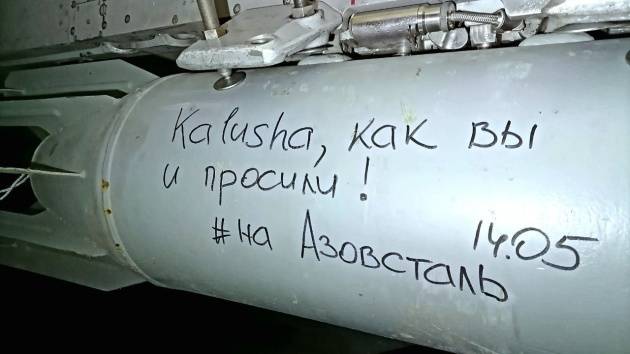 Kalusha, как вы
и просили!
#на Азовсталь 14.05